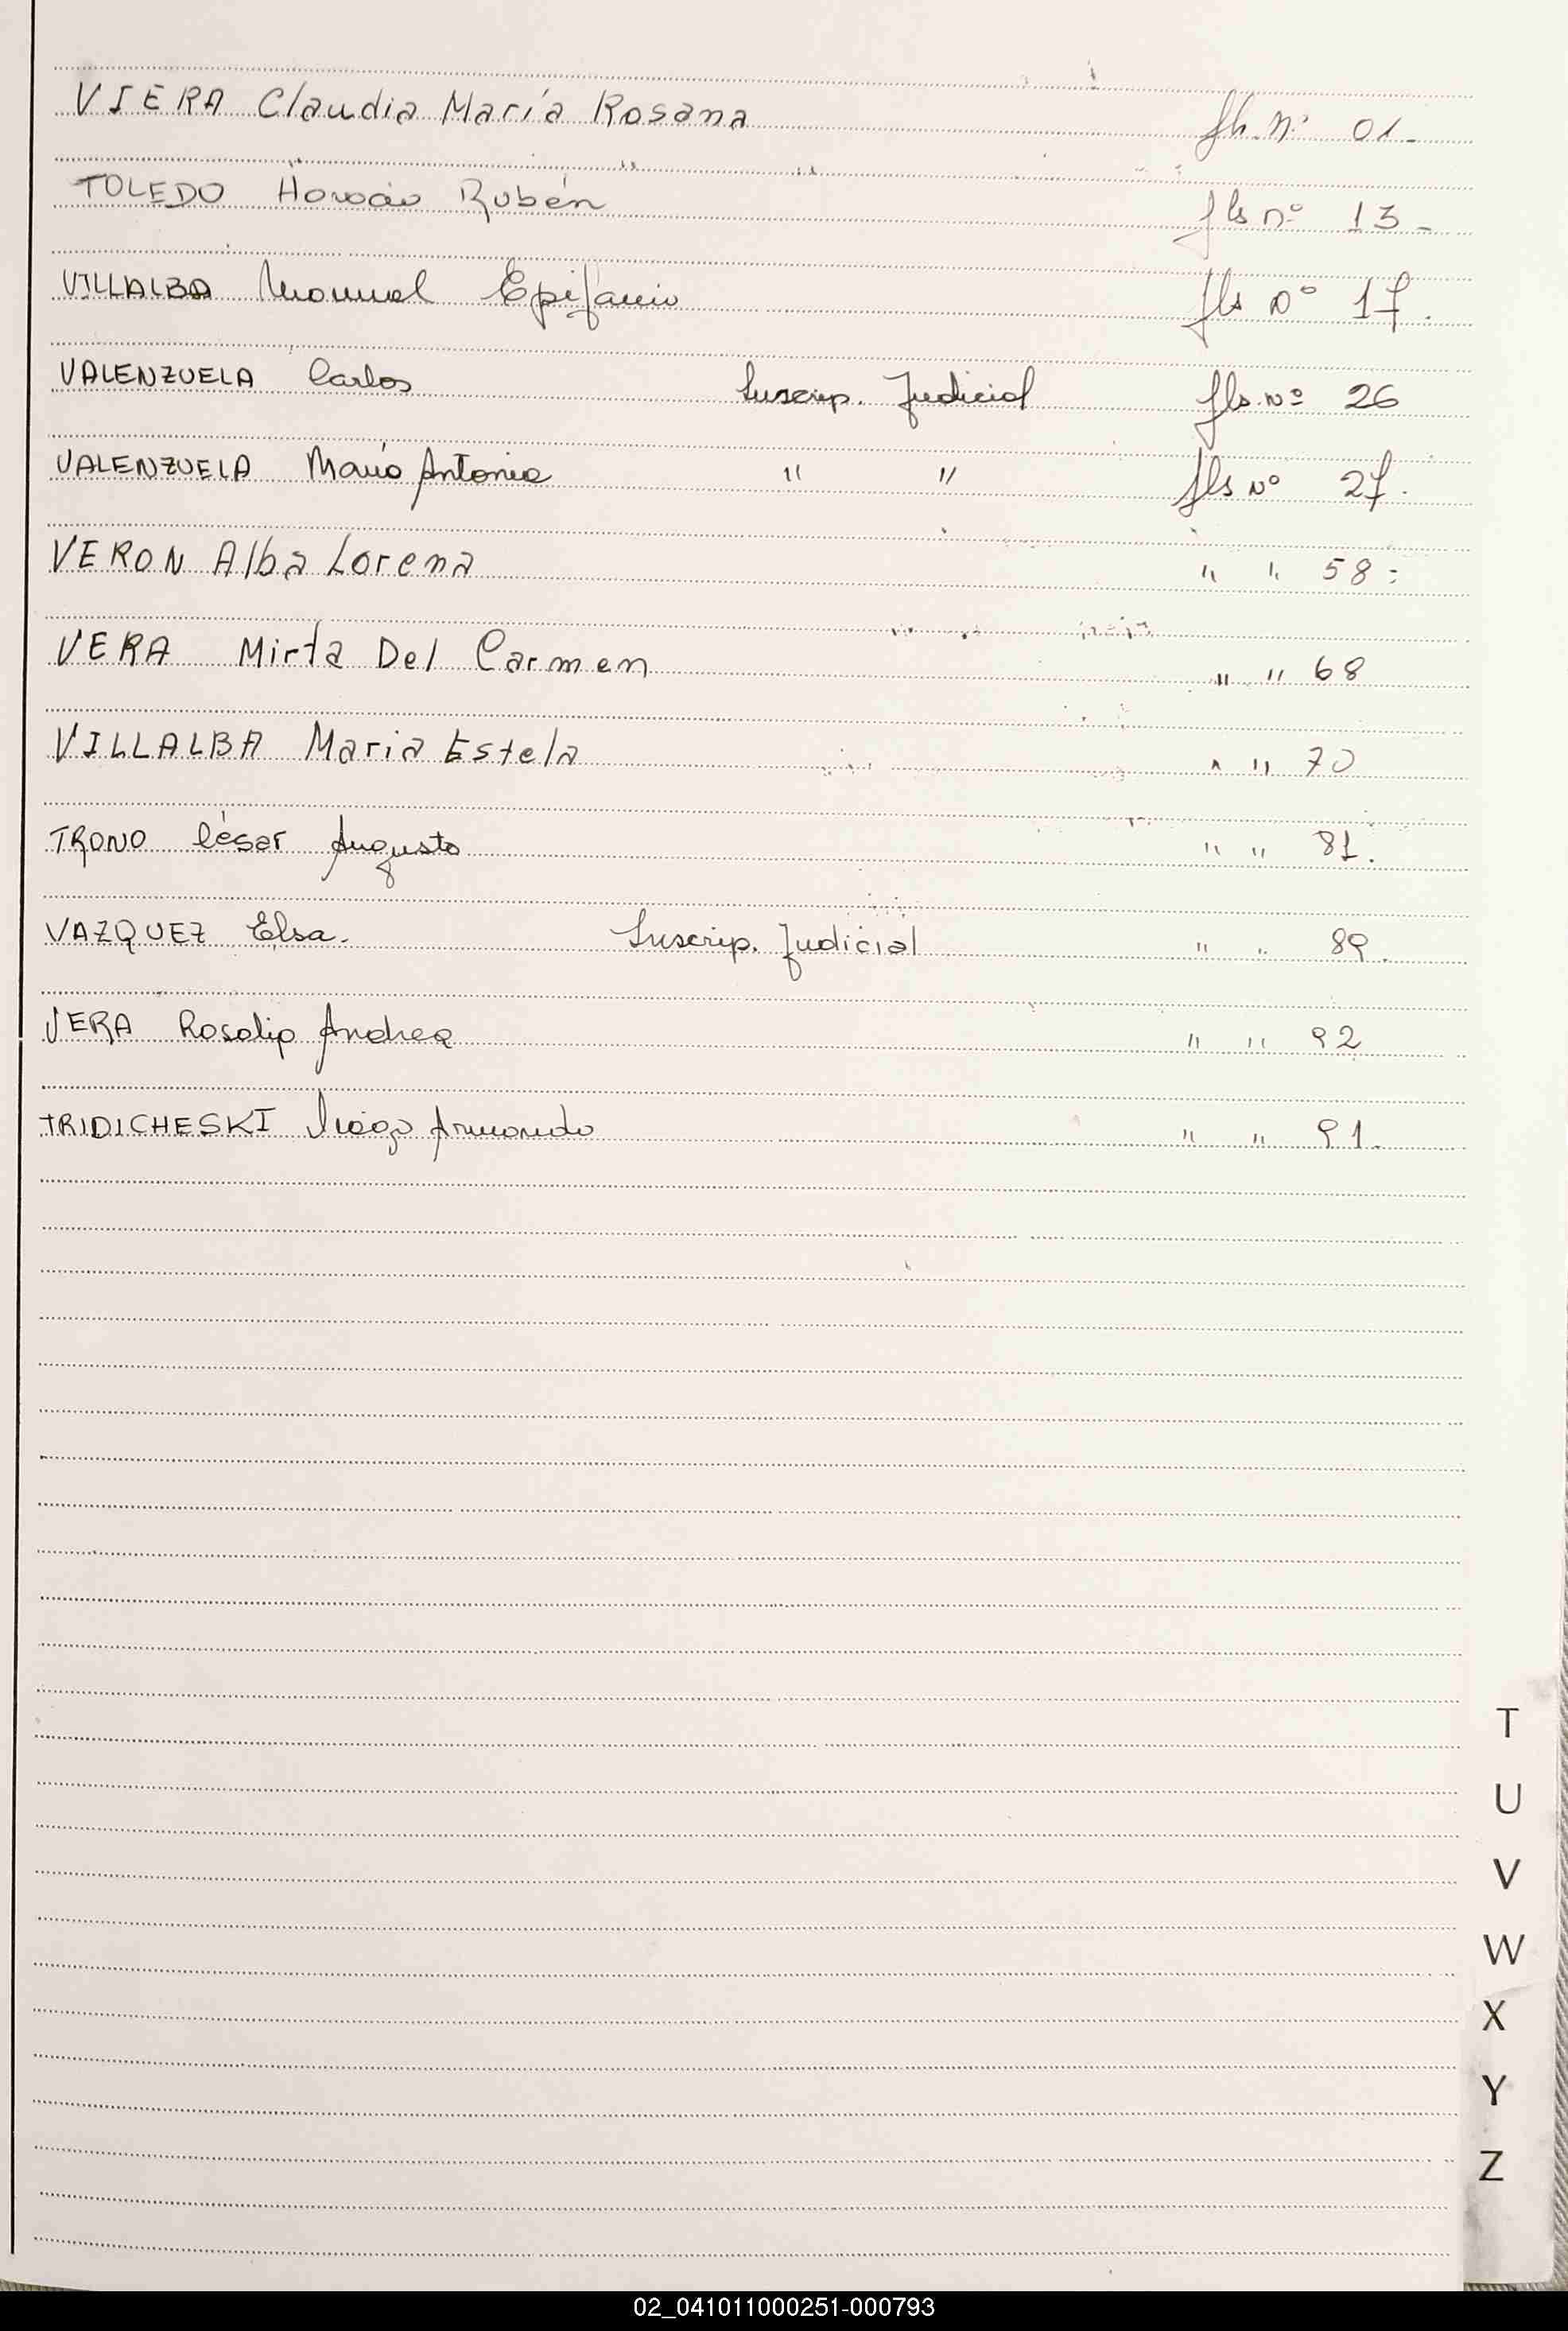 VIERA Claudia María Rosana fls. nº 01.
TOLEDO Horacio Rubén fls nº 13.
VILLALBA Manuel Epifanio fls Nº 17.
VALENZUELA Carlos Inscrip. Judicial fls. Nº 26
VALENZUELA Mario Antonio " " fls Nº 27.
VERON Alba Lorena " " 58:
VERA Mirta Del Carmen " " 68
VILLALBA Maria Estela " " 70
TRONO César Augusto " " 81.
VAZQUEZ Elsa. Inscrip. Judicial " " 89.
VERA Rosalia Andrea " " 92
TRIDICHESKI Armando " " 91.
T
U
V
W
X
Y
Z
02_041011000251-000793